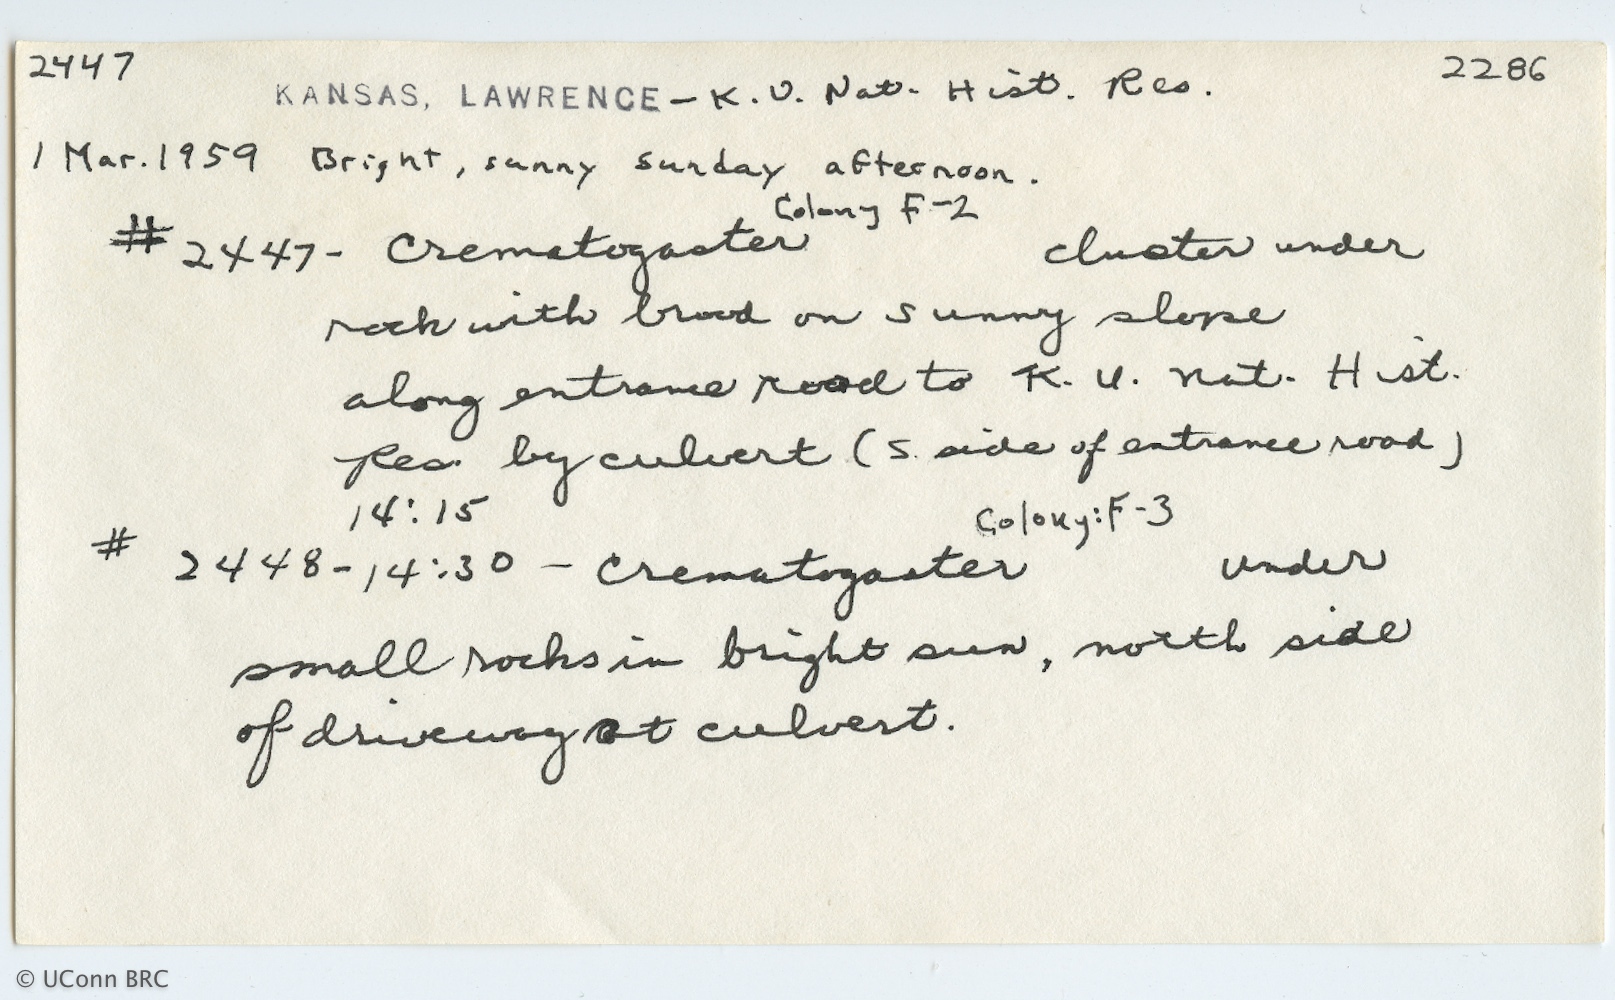 2447
2286
KANSAS, LAWRENCE - K.U. Nat. Hist. Res.
1 Mar. 1959 Bright, sunny Sunday afternoon.
Colony F-2
# 2447 - Crematogaster cluster under
rock with brood on sunny slope
along entrance road to K. U. Nat. Hist.
Res. by culvert (S. side of entrance road)
14:15
Colony: F-3
# 2448 - 14:30 - Crematogaster under
small rocks in bright sun, north side
of driveway at culvert.
© UConn BRC